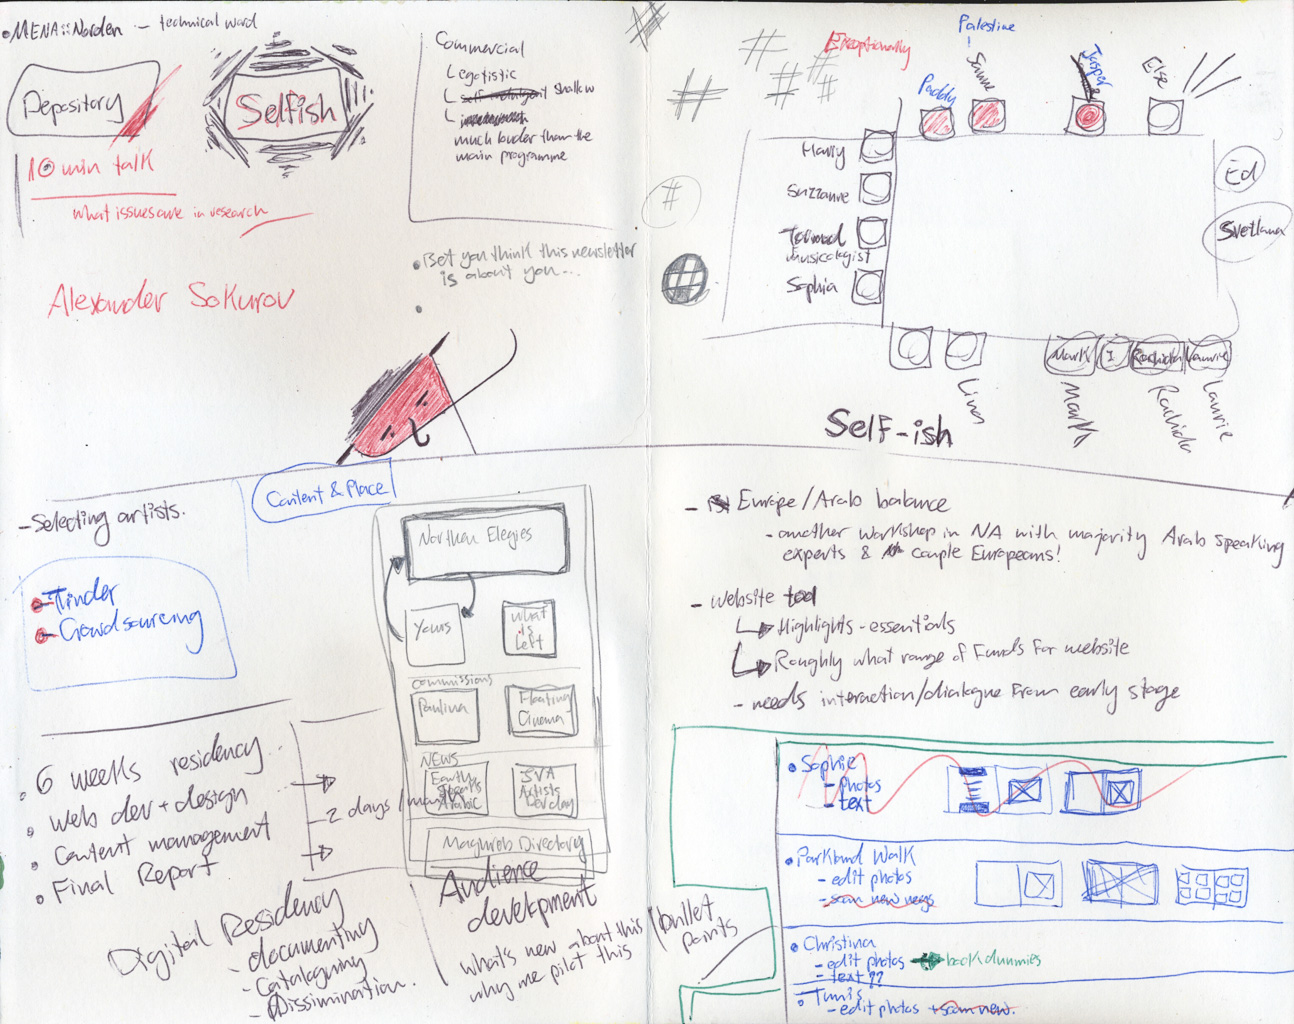 • MENA::Norden — technical word
Repository
Selfish
10 min talk
what issues are in research
Commercial
Egotistic
self-indulgent shallow
much louder than the
main programme
• Bet you think this newsletter
is about you...
Alexander Sokurov
#
#
#
#
#
#
#
Exceptionally
Palestine
Paddy
Sanne
Jasper
Else
Harry
Suzzanne
musicologist
Sophia
Ed
Svetlana
Lina
Mark
I
Rachida
Laurie
Mark
Rachida
Laurie
Self-ish
- Selecting artists.
- Tinder
- Crowdsourcing
Content & Place
Northern Elegies
Yours
What
is
Left
COMMISSIONS
Paulina
Floating
Cinema
NEWS
Earth
Speaks
Arabic
SVA
Artists
Dev day
Maghreb Directory
• 6 weeks residency
• Web dev + design
• Content management
• Final Report
2 days / month
Digital Residency
- documenting
- Cataloguing
- Dissimination.
Audience
development
what's new about this
why me pilot this
bullet
points
- Europe/Arab balance
- another workshop in NA with majority Arab speaking
experts & couple Europeans!
- website tool
Highlights - essentials
Roughly what range of funds for website
- needs interaction/dialogue from early stage
• Sophie
- photos
- text
• Parkland Walk
- edit photos
- scan new negs
• Christina
- edit photos book dummies
- text ??
• Tunis
- edit photos + scan new.